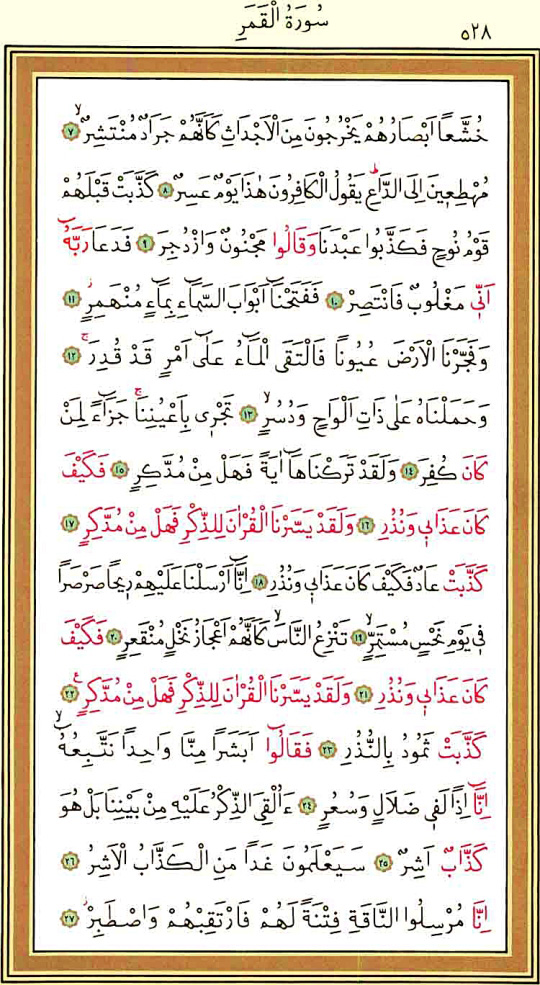 سُورَةُ الْقَمَرِ
٥٢٨
خُشَّعاً اَبْصَارُهُمْ يَخْرُجُونَ مِنَ الْاَجْدَاثِ كَاَنَّهُمْ جَرَادٌ مُنْتَشِرٌۙ ٧
مُهْطِعِينَ اِلَى الدَّاعِۜ يَقُولُ الْكَافِرُونَ هٰذَا يَوْمٌ عَسِرٌ ٨ كَذَّبَتْ قَبْلَهُمْ
قَوْمُ نُوحٍ فَكَذَّبُوا عَبْدَنَا وَقَالُوا مَجْنُونٌ وَازْدُجِرَ ٩ فَدَعَا رَبَّهُٓ
اَنّ۪ي مَغْلُوبٌ فَانْتَصِرْ ١٠ فَفَتَحْنَٓا اَبْوَابَ السَّمَٓاءِ بِمَٓاءٍ مُنْهَمِرٍۘ ١١
وَفَجَّرْنَا الْاَرْضَ عُيُوناً فَالْتَقَى الْمَٓاءُ عَلٰٓى اَمْرٍ قَدْ قُدِرَۚ ١٢
وَحَمَلْنَاهُ عَلٰى ذَاتِ اَلْوَاحٍ وَدُسُرٍۙ ١٣ تَجْر۪ي بِاَعْيُنِنَاۚ جَزَٓاءً لِمَنْ
كَانَ كُفِرَ ١٤ وَلَقَدْ تَرَكْنَاهَٓا اٰيَةً فَهَلْ مِنْ مُدَّكِرٍ ١٥ فَكَيْفَ
كَانَ عَذَاب۪ي وَنُذُرِ ١٦ وَلَقَدْ يَسَّرْنَا الْقُرْاٰنَ لِلذِّكْرِ فَهَلْ مِنْ مُدَّكِرٍ ١٧
كَذَّبَتْ عَادٌ فَكَيْفَ كَانَ عَذَاب۪ي وَنُذُرِ ١٨ اِنَّٓا اَرْسَلْنَا عَلَيْهِمْ ر۪يحاً صَرْصَراً
ف۪ي يَوْمِ نَحْسٍ مُسْتَمِرٍّۙ ١٩ تَنْزِعُ النَّاسَۙ كَاَنَّهُمْ اَعْجَازُ نَخْلٍ مُنْقَعِرٍ ٢٠ فَكَيْفَ
كَانَ عَذَاب۪ي وَنُذُرِ ٢١ وَلَقَدْ يَسَّرْنَا الْقُرْاٰنَ لِلذِّكْرِ فَهَلْ مِنْ مُدَّكِرٍ۟ ٢٢
كَذَّبَتْ ثَمُودُ بِالنُّذُرِ ٢٣ فَقَالُٓوا اَبَشَراً مِنَّا وَاحِداً نَتَّبِعُهُٓۙ
اِنَّٓا اِذاً لَف۪ي ضَلَالٍ وَسُعُرٍ ٢٤ ءَاُلْقِيَ الذِّكْرُ عَلَيْهِ مِنْ بَيْنِنَا بَلْ هُوَ
كَذَّابٌ اَشِرٌ ٢٥ سَيَعْلَمُونَ غَداً مَنِ الْكَذَّابُ الْاَشِرُ ٢٦
اِنَّا مُرْسِلُوا النَّاقَةِ فِتْنَةً لَهُمْ فَارْتَقِبْهُمْ وَاصْطَبِرْۘ ٢٧